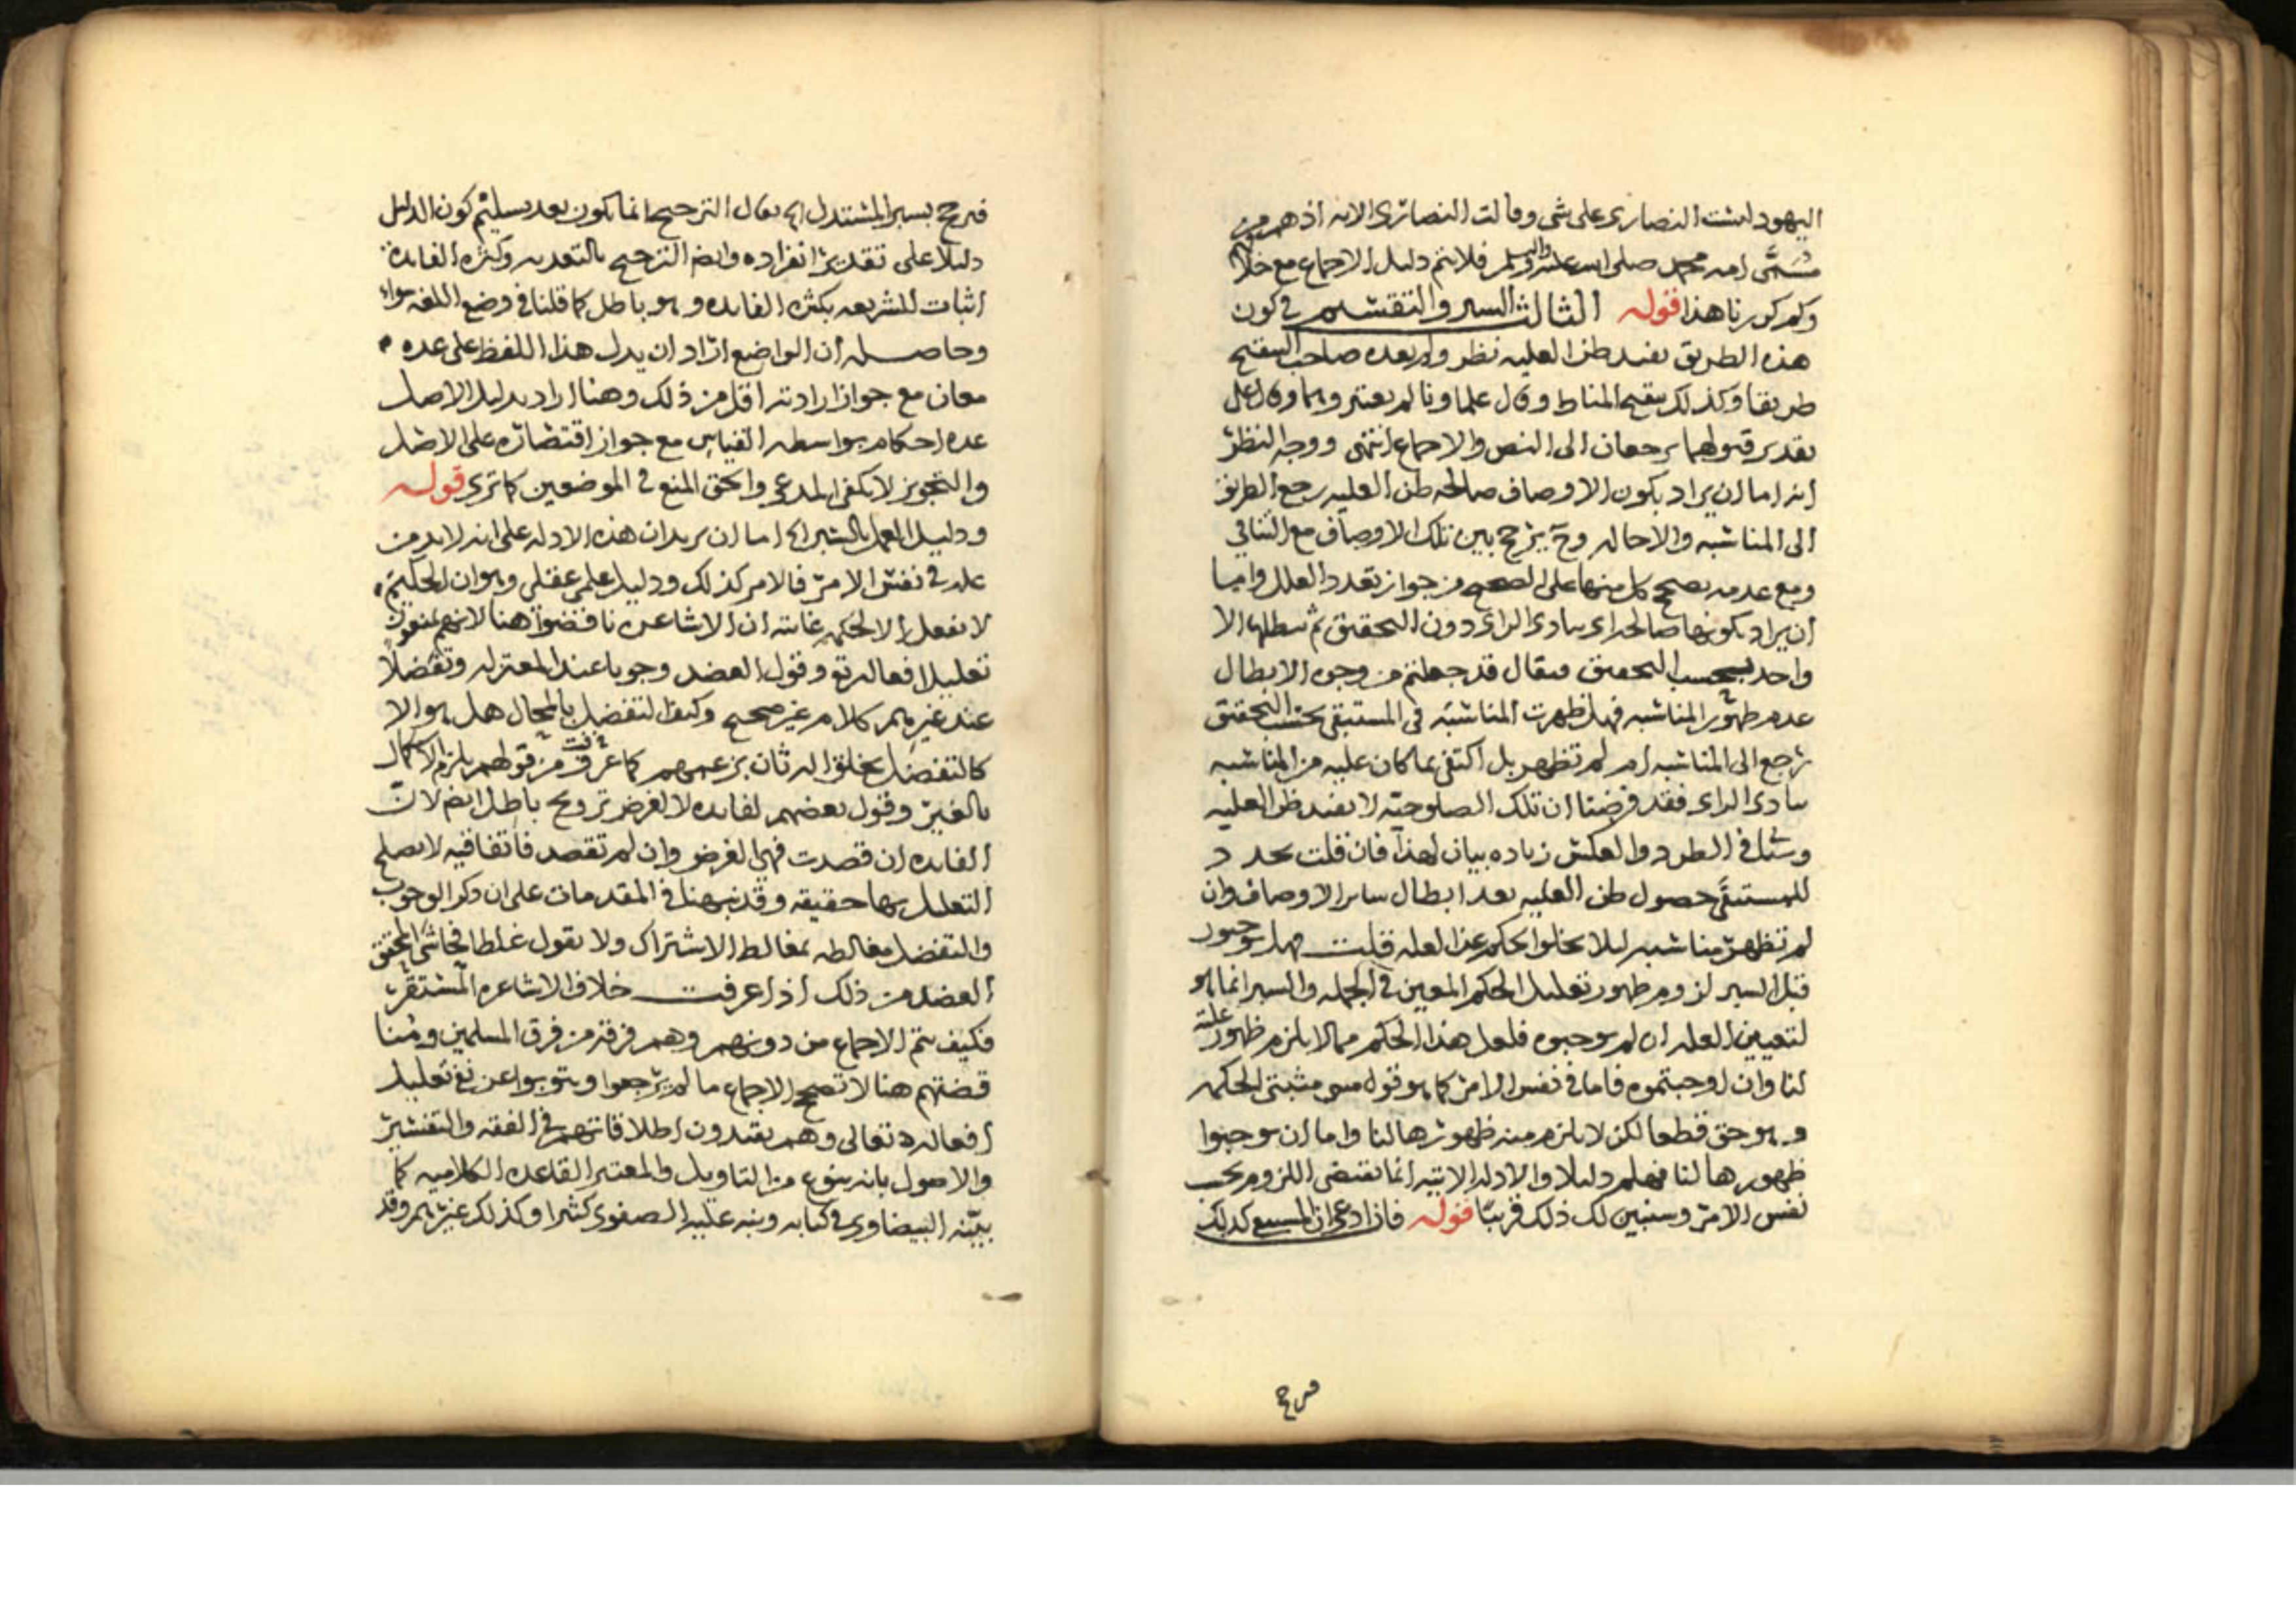 اليهود ليست النصارى على شي وقالت النصارى الايه اذ هم من
مسمى امه محمد صلى الله عليه واله وسلم فلا يتم دليل الاجماع مع خلافهم
وكم كررنا هذا قوله الثالث السبر والتقسيم في كون
هذه الطريق يفيد ظن العليه نظر ولم يعده صاحب التنقيح
طريقا وكذلك تنقيح المناط وقال علماونا لم يعتبروهما وقال على
تقدير قبولهما يرجعان الى النص والاجماع انتهى ووجه النظر
انه اما ان يراد بكون الاوصاف صالحه ظن العليه رجع الطريق
الى المناسبه والاخاله وح يرجح بين تلك الاوصاف مع التنافي
ومع عدمه يصح كل منها على الصحيح من جواز تعدد العلل واما
ان يراد كونها صالحه اي بادى الراى دون التحقيق ثم نبطلها الا
واحد بحسب التحقيق فيقال قد جعلتم من وجوه الابطال
عدم ظهور المناسبه فهل ظهرت المناسبه في المستبقى بحسب التحقيق
رجع الى المناسبه ام لم تظهر بل اكتفى بما كان عليه من المناسبه
بادى الراى فقد فرضنا ان تلك الصلوحيه لا تفيد ظن العليه
وسياتي في الطرد والعكس زياده بيان لهذا فان قلت تجدد
للمستبقى حصول ظن العليه بعد ابطال ساير الاوصاف وان
لم تظهر مناسبه ليلا يخلوا الحكم عن العله قلت هل توجبون
قبل السبر لزوم ظهور تعليل الحكم المعين في الجمله والسبر انما هو
لتعيين العله ان لم توجبوه فلعل هذا الحكم مما لا يلزم ظهور علته
لنا وان اوجبتموه فاما في نفس الامر كما هو قول مثبتى الحكمه
وهو حق قطعا لكن لا يلزم منه ظهورها لنا واما ان توجبوا
ظهورها لنا فهلم دليلا والادله الاتيه انما تقتضى اللزوم بحسب
نفس الامر وسنبين لك ذلك قريبا قوله فان ادعى ان المستبقى كذلك
فرجح
فيرجح بسبر المستدل الخ يقال الترجيح انما يكون بعد تسليم كون الدليل
دليلا على تقدير انفراده وايضا الترجيح بالتعديه وكثره الفايده
اثبات للشريعه بكثره الفايده وهو باطل كما قلنا في وضع اللغه سواء
وحاصله ان الواضع اراد ان يدل هذا اللفظ على عده
معان مع جواز ارادته اقل من ذلك وهنا اراد بدليل الاصل
عده احكام بواسطه القياس مع جواز اقتصاره على الاصل
والتجويز لا يكفى المدعى والحق المنع في الموضعين كما ترى قوله
ودليل العمل بالسبر الخ اما ان يريد ان هذه الادله على انه لا بد من
عله في نفس الامر فالامر كذلك ودليل علمى عقلى وهو ان الحكيم
لا يفعل الا لحكمه غايته ان الاشاعره ناقضوا هنا لانهم يمنعون
تعليل افعاله تع وقول العضد وجوبا عند المعتزله وتفضلا
عند غيرهم كلام غير صحيح وكيف التفضل بالمحال هل هو الا
كالتفضل بخلق اله ثان بزعمهم كما عرفت من قولهم يلزم الاكمال
بالغير وقول بعضهم لفايده لا لغرض ترويج باطل ايضا لان
الفايده ان قصدت فهي الغرض وان لم تقصد فاتفاقيه لا يصلح
التعليل بها حقيقه وقد نبهنا في المقدمات على ان ذكر الوجوب
والتفضل مغالطه بمغالط الاشتراك ولا نقول غلطا فحاشى المحقق
العضد من ذلك اذا عرفت خلاف الاشاعره المستقر
فكيف يتم الاجماع من دونهم وهم فرقه من فرق المسلمين
قضيتهم هنا لا تصحح الاجماع ما لم يرجعوا ويتوبوا عن نفي تعليل
افعاله تعالى وهم يقيدون اطلاقاتهم في الفقه والتفسير
والاصول بانه بنوع من التاويل والمعتبر القاعده الكلاميه كما
بينه البيضاوي في كتابه ونبه عليه الصفوي كثيرا وكذلك غيرهم وقد